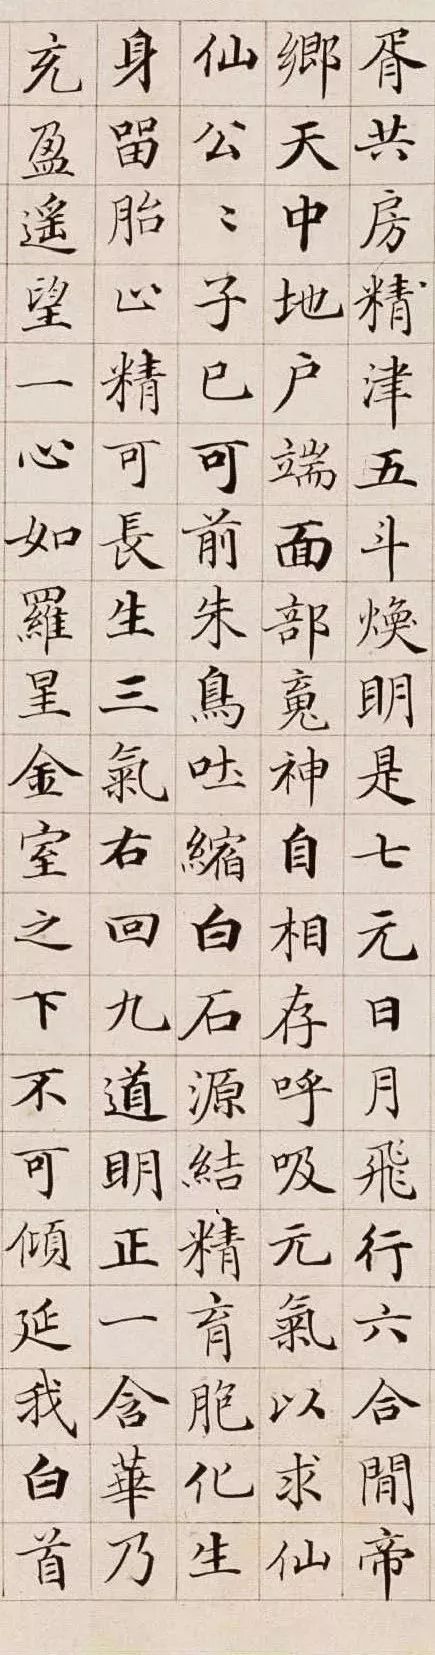 胥共房精津五斗煥明是七元日月飛行六合閒帝
鄉天中地户端面部䰟神自相存呼吸元氣以求仙
仙公〻子巳可前朱鳥吐縮白石源結精育胞化生
身留胎止精可長生三氣右回九道明正一含華乃
充盈遥望一心如羅星金室之下不可傾延我白首